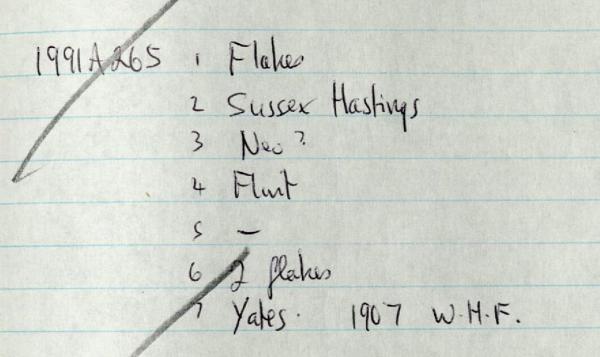 1991A265 1 Flakes
2 Sussex Hastings
3 Neo?
4 Flint
5 —
6 2 flakes
7 Yates. 1907 W.H.F.